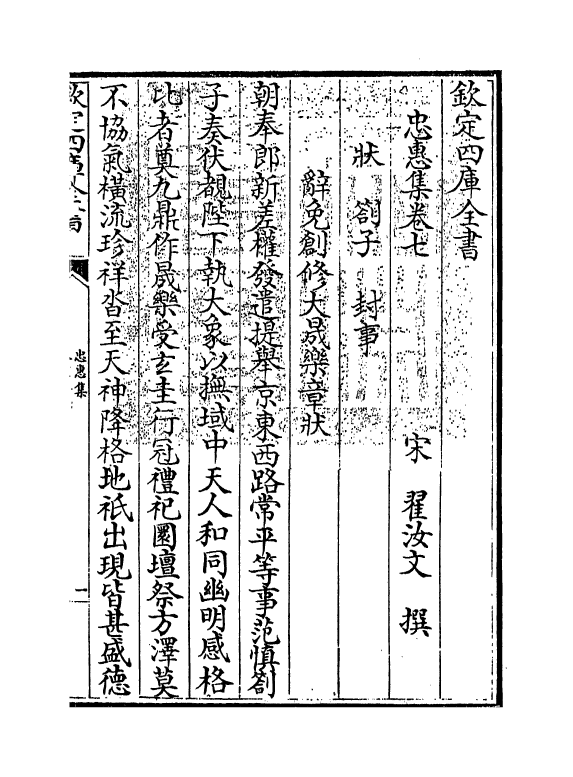 欽定四庫全書
忠惠集卷七
宋 翟汝文 撰
狀 劄子 封事
辭免創修大晟樂章狀
朝奉郎新差權發遣提舉京東西路常平等事范慎劄
子奏伏覩陛下執大象以撫域中天人和同幽明感格
比者奠九鼎作晟樂受玄圭行冠禮祀圜壇祭方澤莫
不協氣橫流珍祥沓至天神降格地祇出現皆甚盛德
忠惠集
一